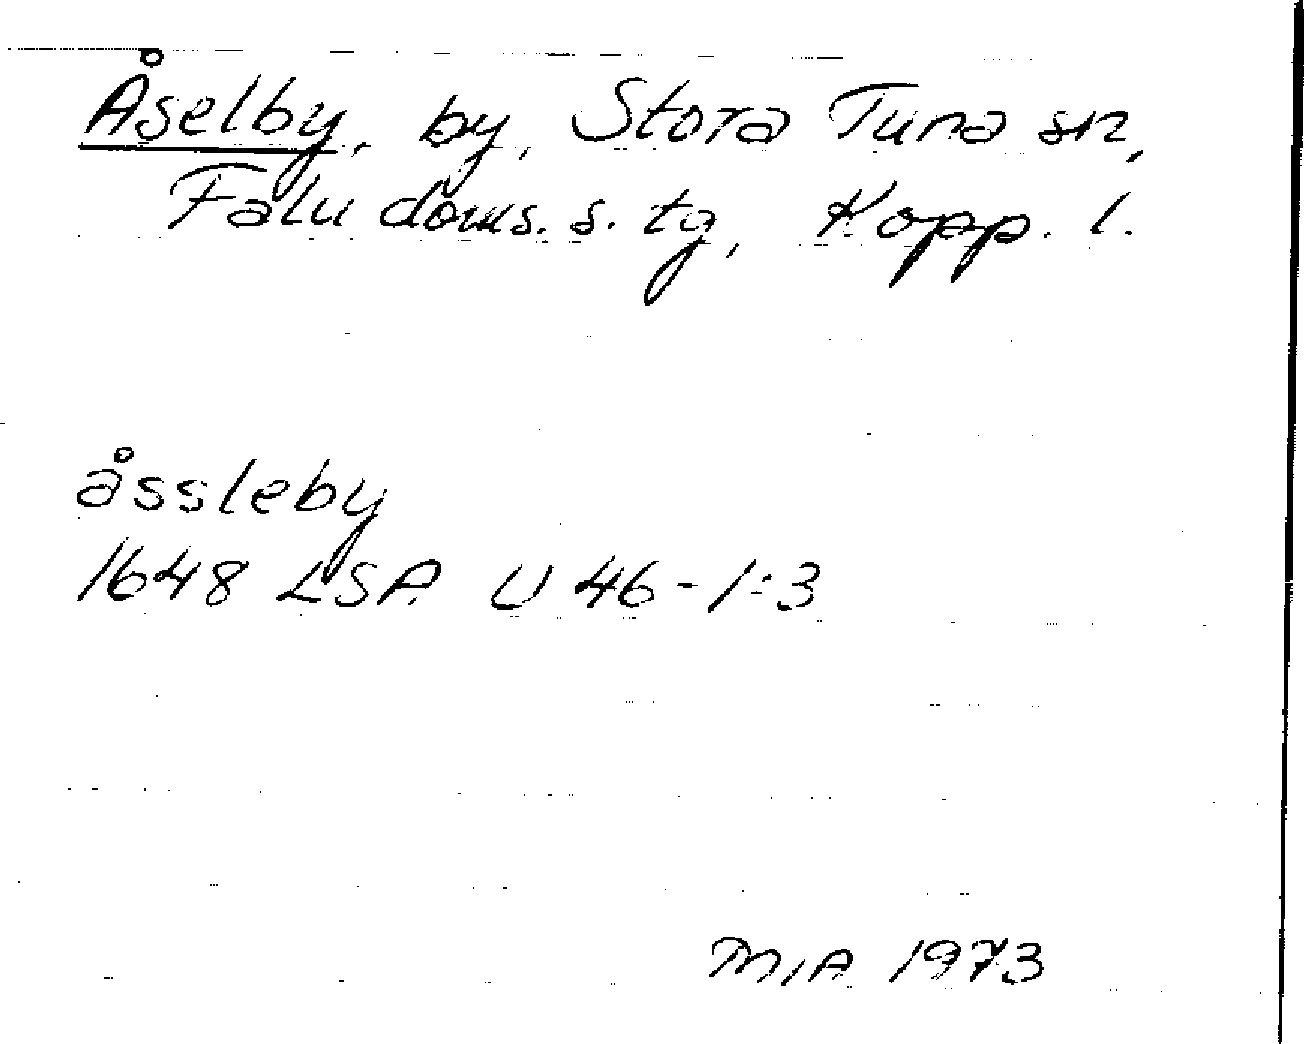 Åselby, by, Stora Tuna sn,
Falu doms. s. tg, Kopp. l.
åssleby
1648 LSA U 46-1:3
MIA 1973